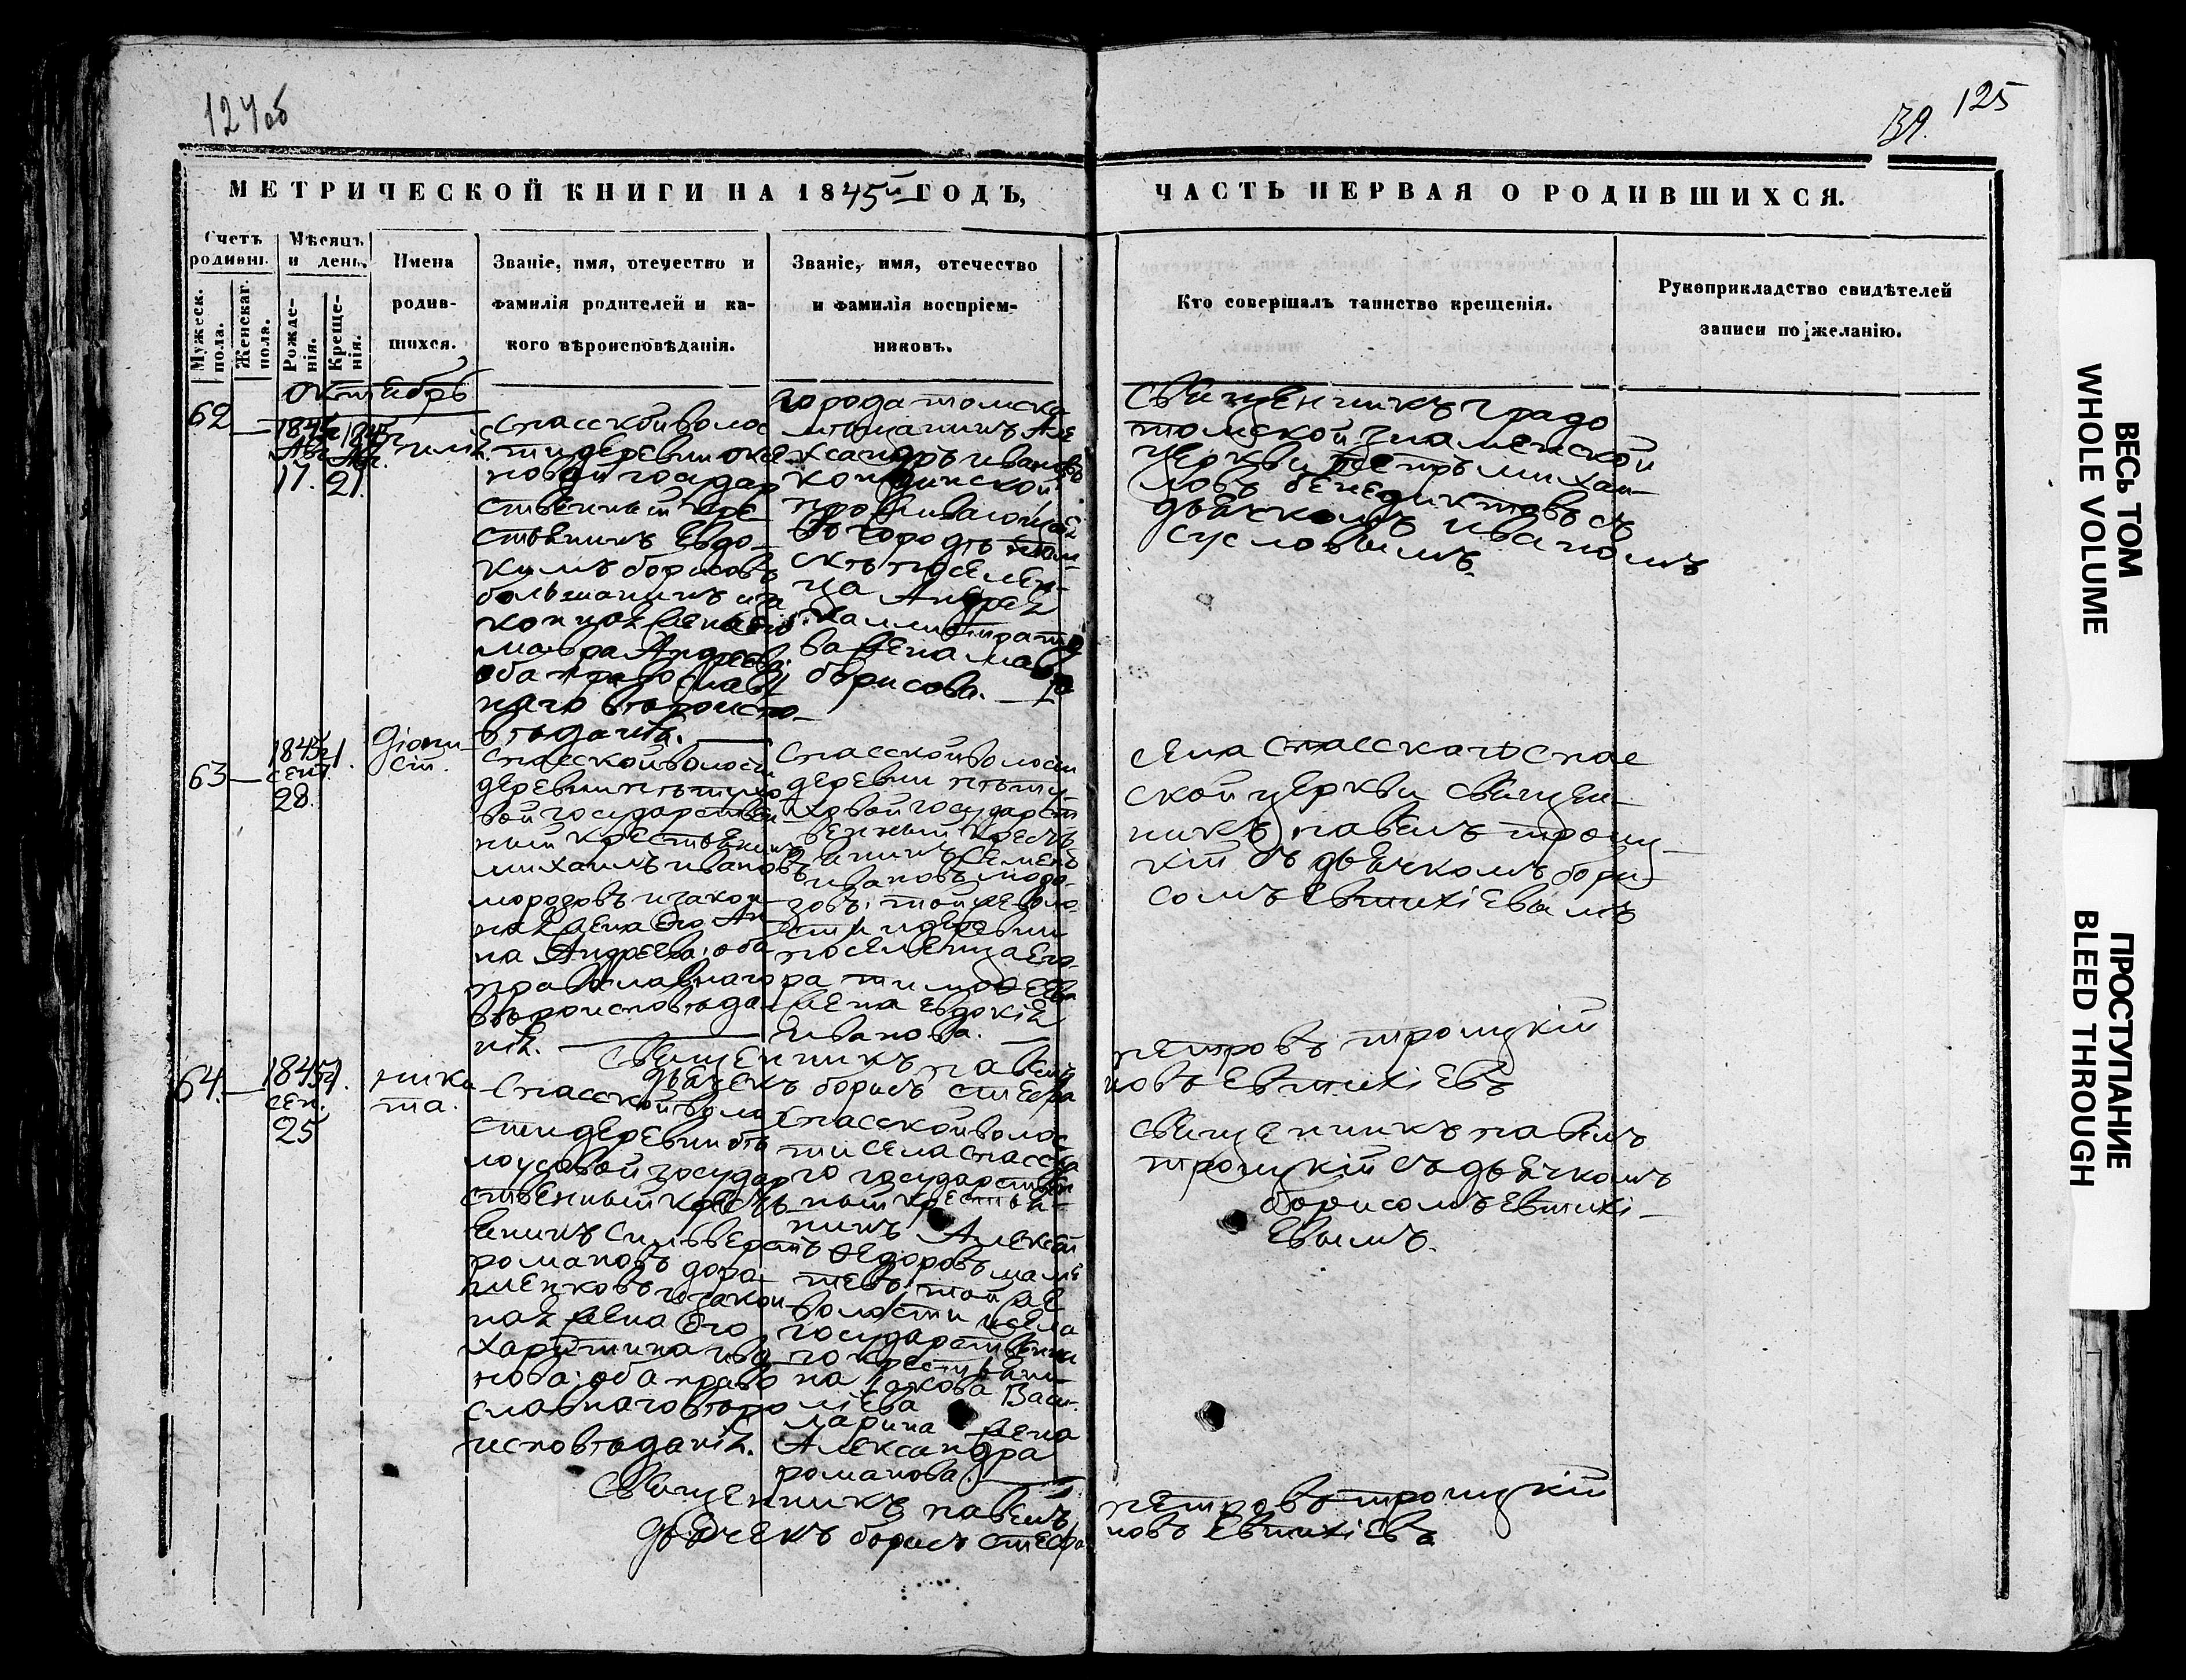 124об
125
39.
МЕТРИЧЕСКОЙ КНИГИ НА 1845й ГОДЪ,
ЧАСТЬ ПЕРВАЯ О РОДИВШИХСЯ.
Счетъ родивш.
Мужеск. пола.
Женскаг. пола.
Мѣсяцъ и день.
Рожде-нія.
Креще-нія.
Имена
родив-
шихся.
Званіе, имя, отечество и
фамилія родителей и ка-
кого вѣроисповѣданія.
Званіе, имя, отечество
и фамилія воспріем-
никовъ.
Кто совершалъ таинство крещенія.
Рукоприкладство свидѣтелей
записи по желанію.
октябрь
62
17.
21.
спасской волос
ти деревни
новой государ
ственный кре
стьянинъ Евдо-
кимъ борисовъ
большанинъ и за
коная жена его
мавра Андреева
оба православ
наго вѣроиспо-
вѣданія.
города томска
мѣщанинъ Але
ксандръ ивановъ
проживающей
въ городѣ том-
скѣ поселен-
ца Андрея
Каллистрато
ва жена мавра
борисова.
священникъ градо
томской знаменской
церкви петръ михаи-
ловъ бенедиктовъ съ
дьячкомъ иваномъ
сусловымъ.
63
1845
сент.
28.
діони-
сій.
спасской волости
деревни пѣтухо
вой государствен
ный крестьянинъ
михаилъ ивановъ
мородовъ и закон
ная жена его Ан
на Андреева; оба
православнаго
вѣроисповѣда
нія.
спасской волости
деревни пѣту-
ховой государст
венный кресть
янинъ семенъ
ивановъ
той же воло
сти и деревни
поселенца его-
ра тимофеева
жена евдокія
Иванова.
села спасскаго спас
ской церкви священ-
никъ павелъ троиц-
кій съ дьячкомъ бори-
сомъ Евтихіевымъ
священникъ павелъ петровъ троицкій
дьячекъ борисъ стефановъ Евтихіевъ
64.
1845
сен.
25
ники
та.
спасской воло
сти деревни бѣ
лоусовой государ
ственный кресть
янинъ сильверстъ
романовъ дора
шенковъ и закон
ная жена его
Харитина ива
нова; оба право
славнаго вѣро
исповѣданія.
спасской волос
ти села спасска
го государствен
ный крестья-
нинъ Алексѣй
Ѳедоровъ
той же
волости и села
государственна
го крестьяни-
на Іакова Васи-
ліева
ларина жена
Александра
романова.
священникъ павелъ
троицкій съ дьячкомъ
борисомъ евтихі-
евымъ.
священникъ павелъ петровъ троицкій
дьячекъ борисъ стефановъ Евтихіевъ
ВЕСЬ ТОМ
WHOLE VOLUME
ПРОСТУПАНИЕ
BLEED THROUGH